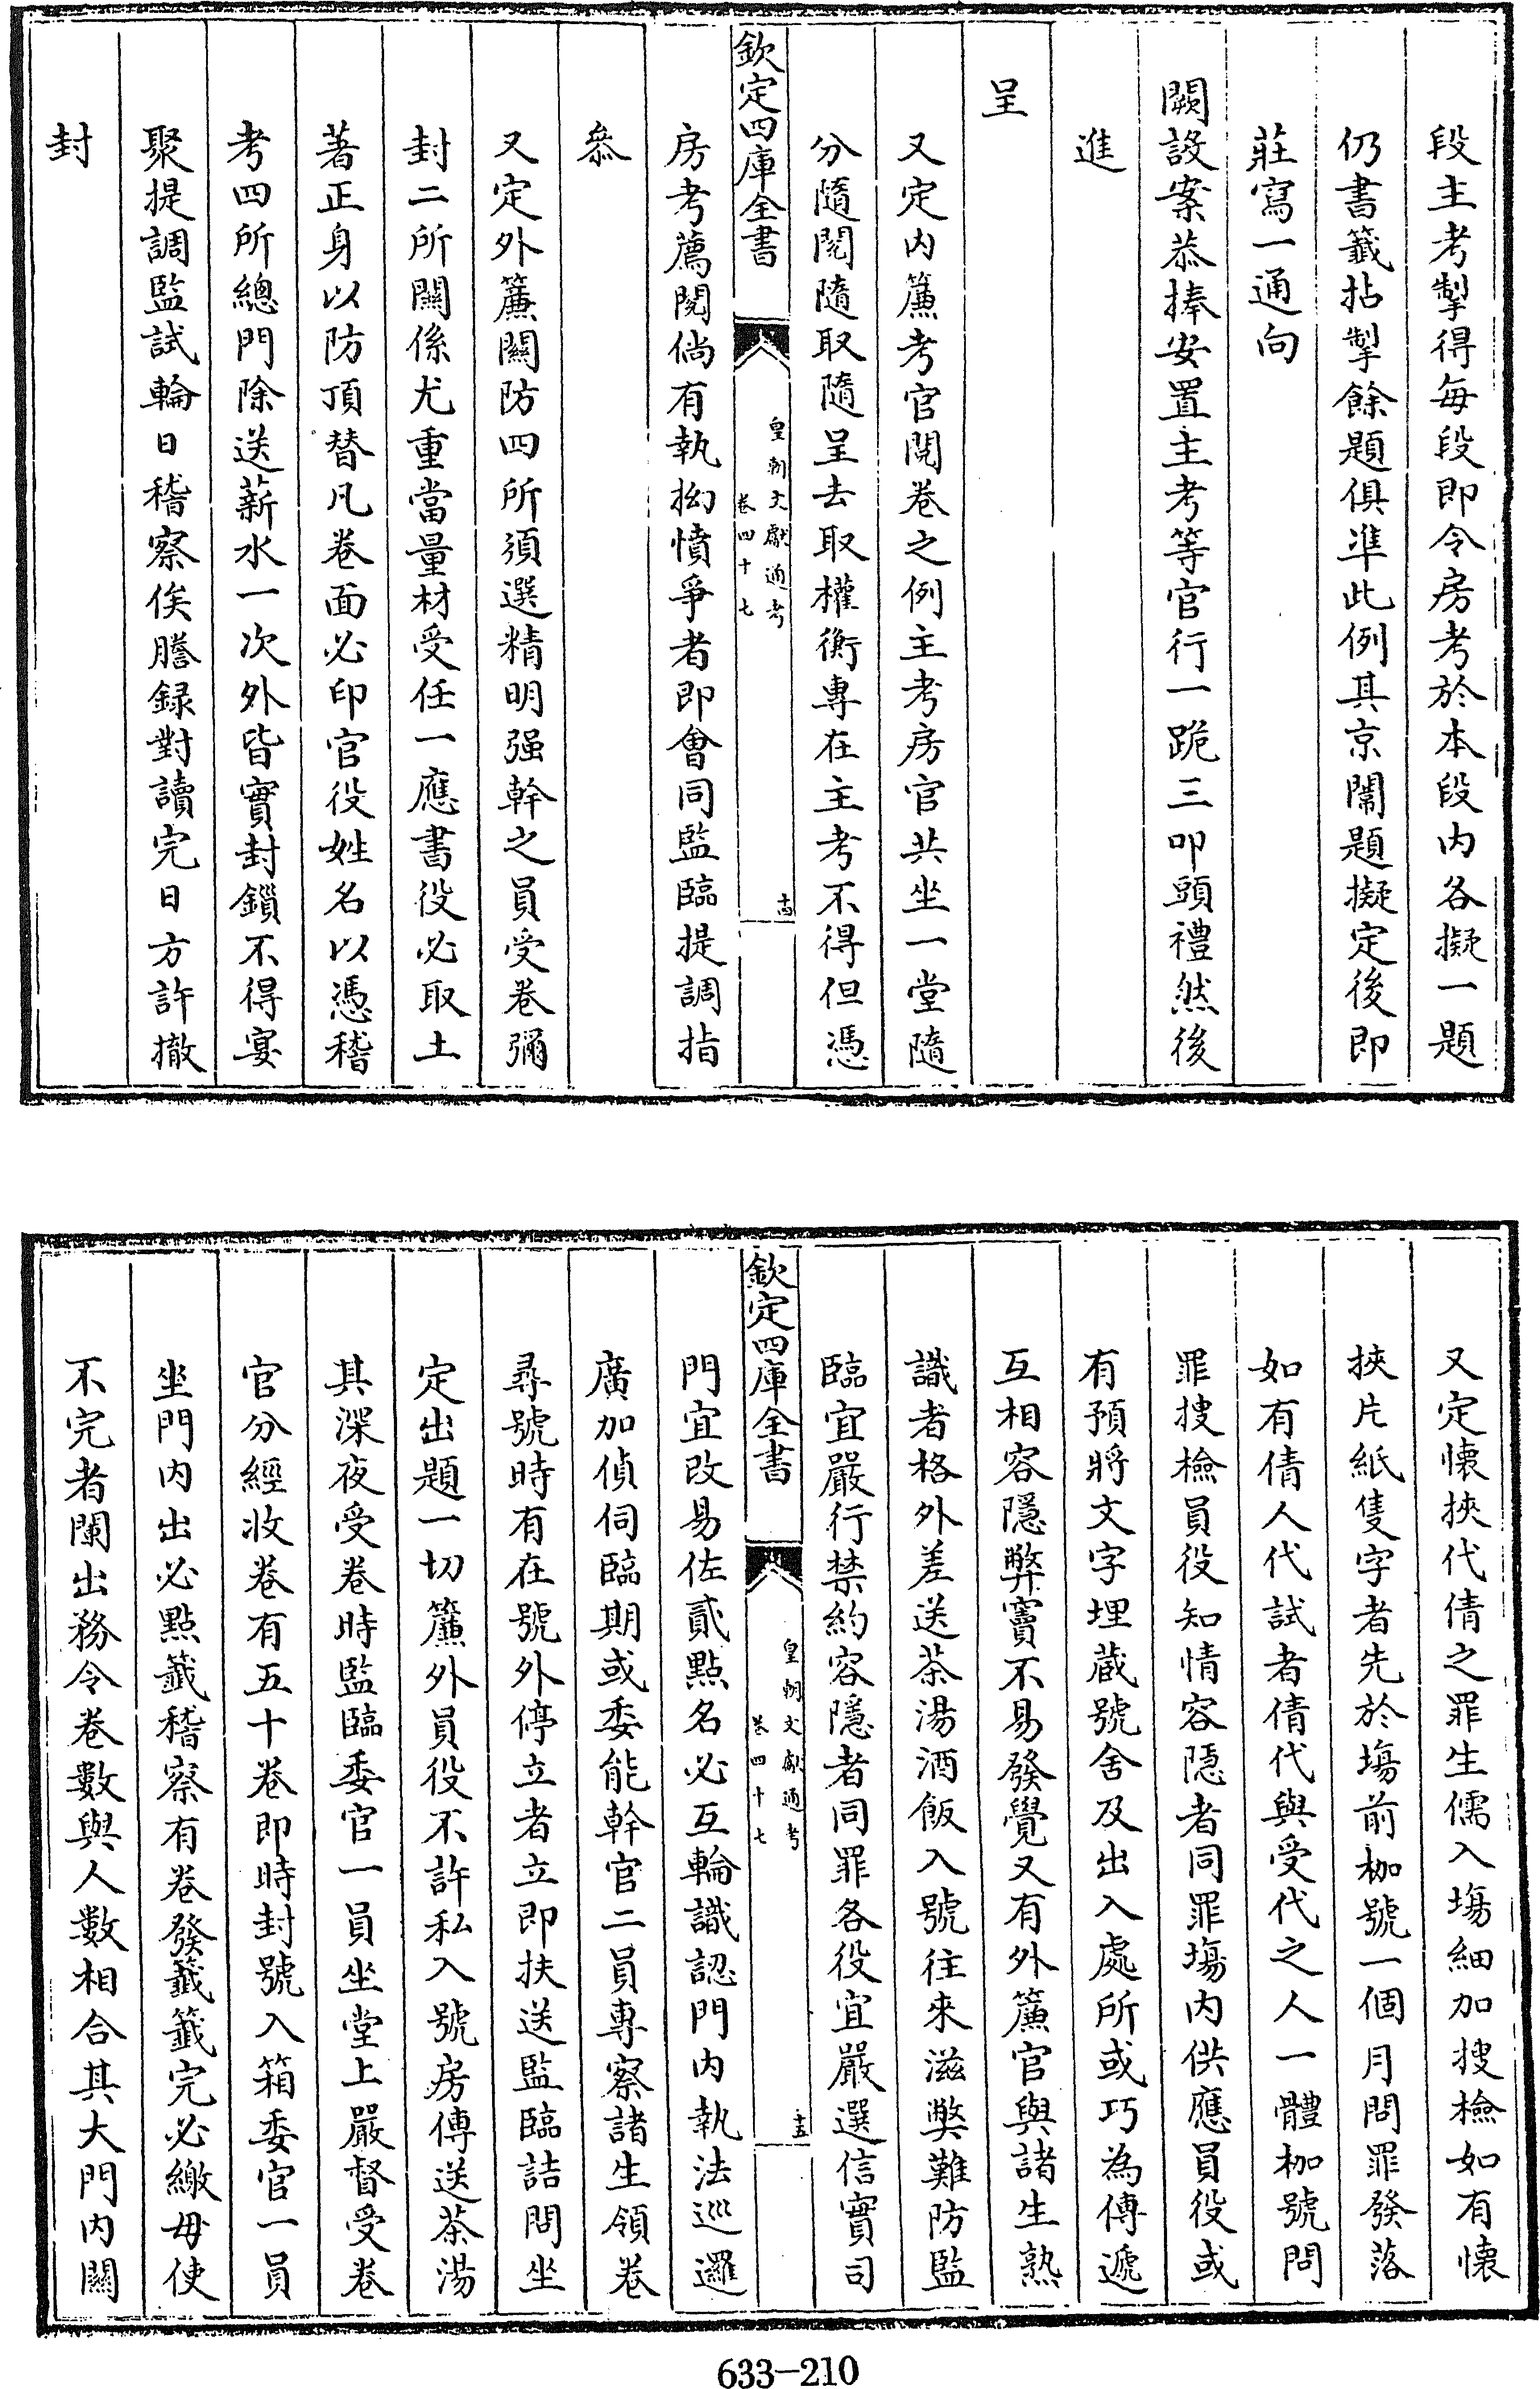 段主考掣得每段即令房考於本段内各擬一題
仍書籤拈掣餘題俱準此例其京闈題擬定後即
莊寫一通向
闕設案恭捧安置主考等官行一跪三叩頭禮然後
進
呈
又定内簾考官閱卷之例主考房官共坐一堂隨
分隨閱隨取隨呈去取權衡專在主考不得但憑
欽定四庫全書
皇朝文獻通考
卷四十七
十四
房考薦閱倘有執拗憤爭者即會同監臨提調指
叅
又定外簾關防四所須選精明强幹之員受卷彌
封二所關係尤重當量材受任一應書役必取土
著正身以防頂替凡卷面必印官役姓名以憑稽
考四所總門除送薪水一次外皆實封鎖不得宴
聚提調監試輪日稽察俟謄録對讀完日方許撤
封
又定懷挾代倩之罪生儒入塲細加搜檢如有懷
挾片紙隻字者先於塲前枷號一個月問罪發落
如有倩人代試者倩代與受代之人一體枷號問
罪搜檢員役知情容隱者同罪塲内供應員役或
有預將文字埋蔵號舍及出入處所或巧為傳遞
互相容隱弊竇不易發覺又有外簾官與諸生熟
識者格外差送茶湯酒飯入號往來滋弊難防監
臨宜嚴行禁約容隱者同罪各役宜嚴選信實司
欽定四庫全書
皇朝文獻通考
卷四十七
十五
門宜改易佐貳點名必互輪識認門内執法巡邏
廣加偵伺臨期或委能幹官二員專察諸生領卷
尋號時有在號外停立者立即扶送監臨詰問坐
定出題一切簾外員役不許私入號房傳送茶湯
其深夜受卷時監臨委官一員坐堂上嚴督受卷
官分經收卷有五十卷即時封號入箱委官一員
坐門内出必點籤稽察有卷發籤籤完必繳毋使
不完者闌出務令卷數與人數相合其大門内關
633-210